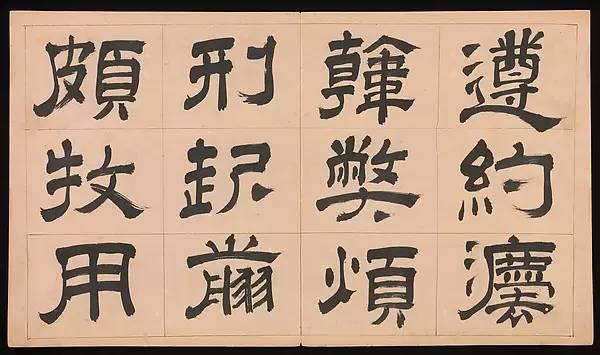 遵約灋
韓弊煩
刑起翦
頗牧用